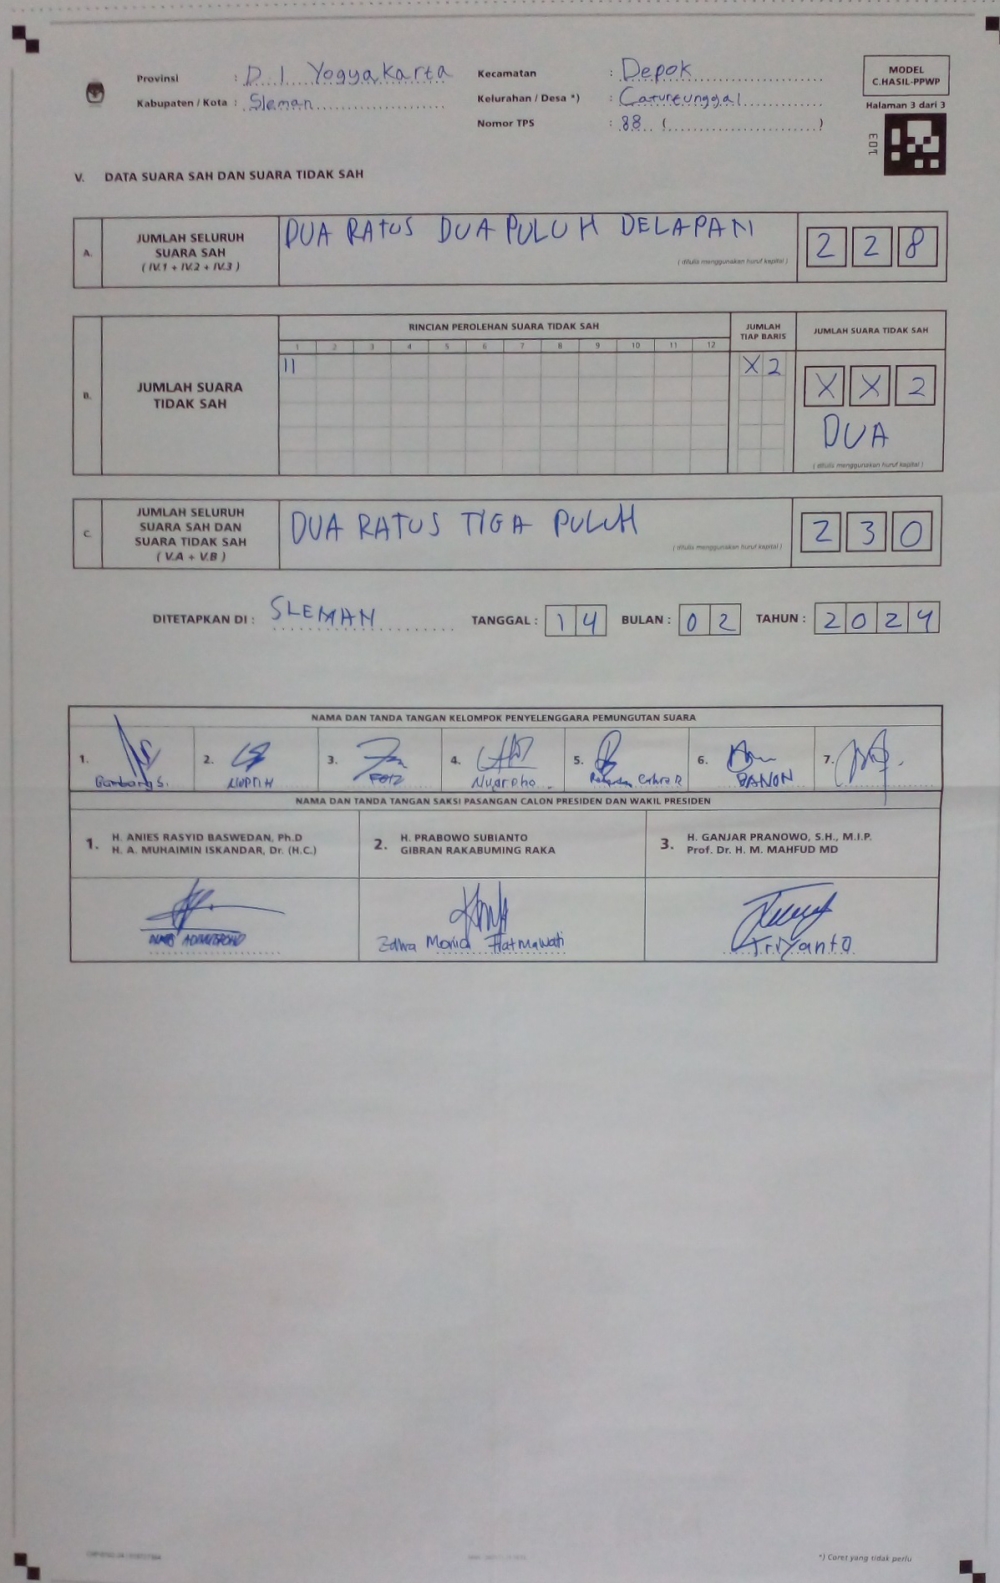 Provinsi : D. I. Yogyakarta
Kabupaten / Kota : Sleman
Kecamatan : Depok
Kelurahan / Desa *) : Caturtunggal
Nomor TPS : 88 (.......................)
MODEL
C.HASIL-PPWP
Halaman 3 dari 3
V. DATA SUARA SAH DAN SUARA TIDAK SAH
A. JUMLAH SELURUH SUARA SAH ( IV.1 + IV.2 + IV.3 )
DUA RATUS DUA PULUH DELAPAN
( ditulis menggunakan huruf kapital )
2 2 8
B. JUMLAH SUARA TIDAK SAH
RINCIAN PEROLEHAN SUARA TIDAK SAH
1 2 3 4 5 6 7 8 9 10 11 12
JUMLAH TIAP BARIS
JUMLAH SUARA TIDAK SAH
II X 2
X X 2
DUA
( ditulis menggunakan huruf kapital )
C. JUMLAH SELURUH SUARA SAH DAN SUARA TIDAK SAH ( V.A + V.B )
DUA RATUS TIGA PULUH
( ditulis menggunakan huruf kapital )
2 3 0
DITETAPKAN DI : SLEMAN TANGGAL : 1 4 BULAN : 0 2 TAHUN : 2 0 2 4
NAMA DAN TANDA TANGAN KELOMPOK PENYELENGGARA PEMUNGUTAN SUARA
1. Bambang S. 2. 3. 4. 5. 6. DANON 7.
NAMA DAN TANDA TANGAN SAKSI PASANGAN CALON PRESIDEN DAN WAKIL PRESIDEN
1. H. ANIES RASYID BASWEDAN, Ph.D
H. A. MUHAIMIN ISKANDAR, Dr. (H.C.)
2. H. PRABOWO SUBIANTO
GIBRAN RAKABUMING RAKA
3. H. GANJAR PRANOWO, S.H., M.I.P.
Prof. Dr. H. M. MAHFUD MD
Triyanto
*) Coret yang tidak perlu